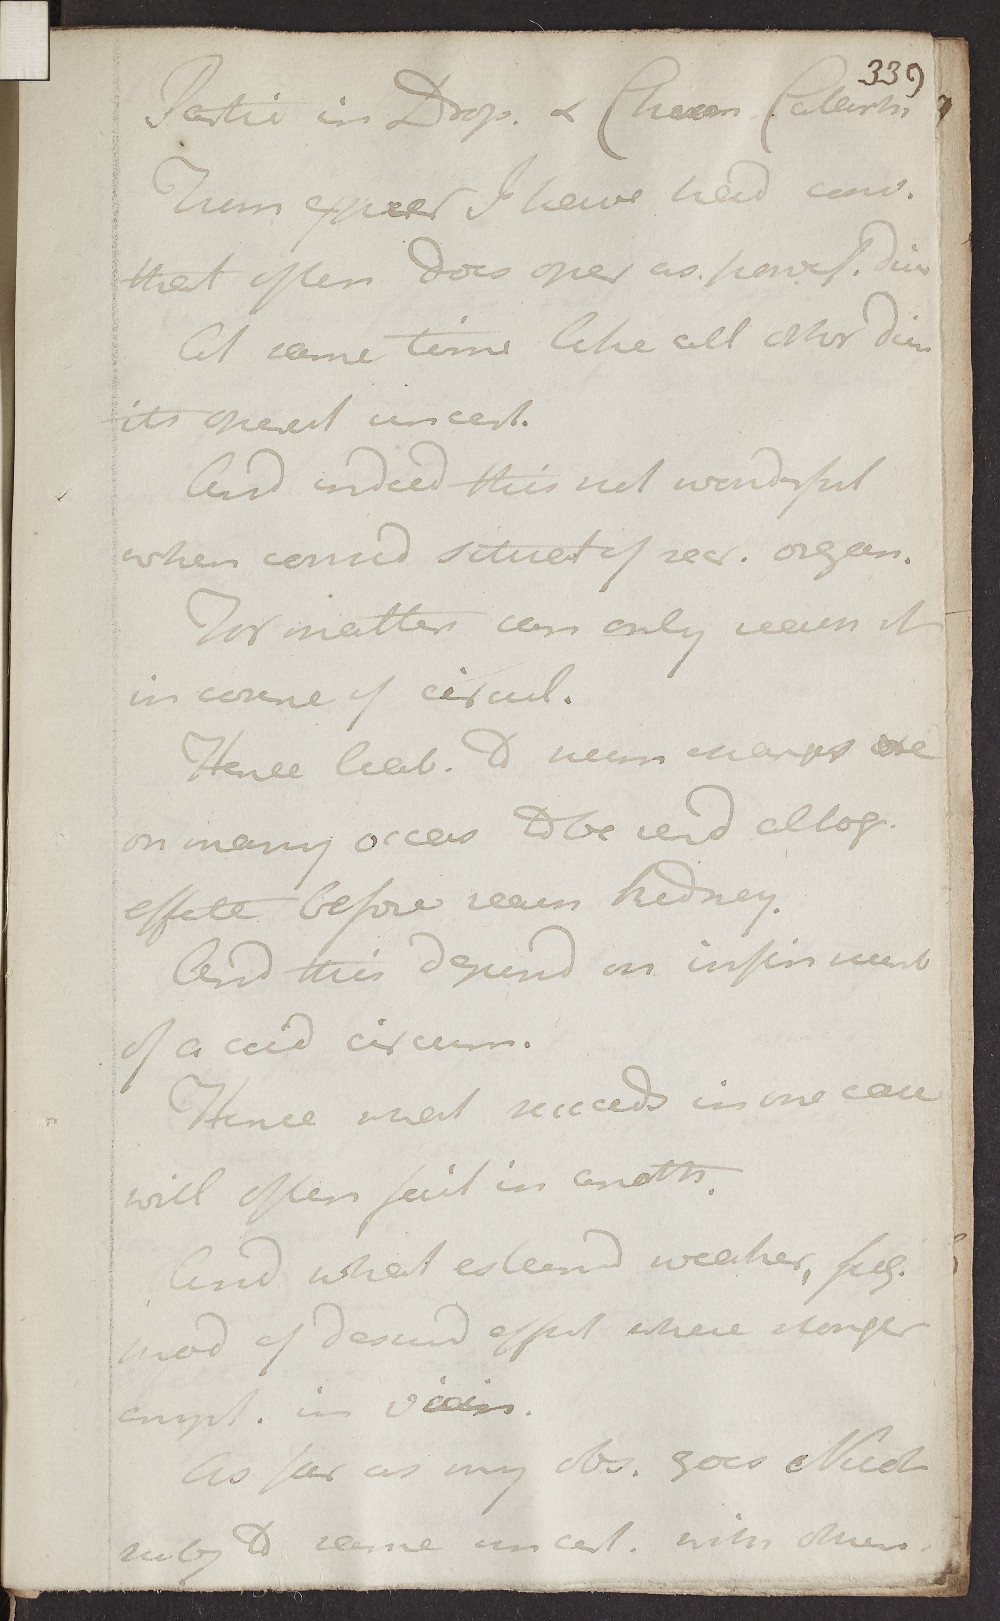 339
Partic in Drop. & Chron Catarrh
From exper I have had conv.
that often does oper as. powerf. diur
At same time like all other diur
its operat uncert.
And indeed this not wonderful
when consid situat of secr. organ.
For matter can only reach it
in course of circul.
Hence liab. to
on many occas to be rend altog.
effete before reach kidney.
And this depend on infin numb
of accid circum.
Hence what succeeds in one case
will often fail in anoth.
And what esteemd weaker, freq.
prod of desird effect where stronger
empl. in vain.
As far as my obs. goes Nicot
subj to same uncert. with others.